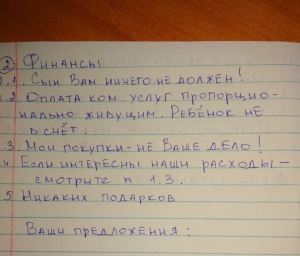 2. Финансы
2.1. Сын Вам ничего не должен!
2.2 Оплата ком. услуг пропорцио-
нально живущим. Ребёнок не
в счёт.
3. Мои покупки - не Ваше дело!
4. Если интересны наши расходы -
смотрите п. 1.3.
5 Никаких подарков
Ваши предложения: